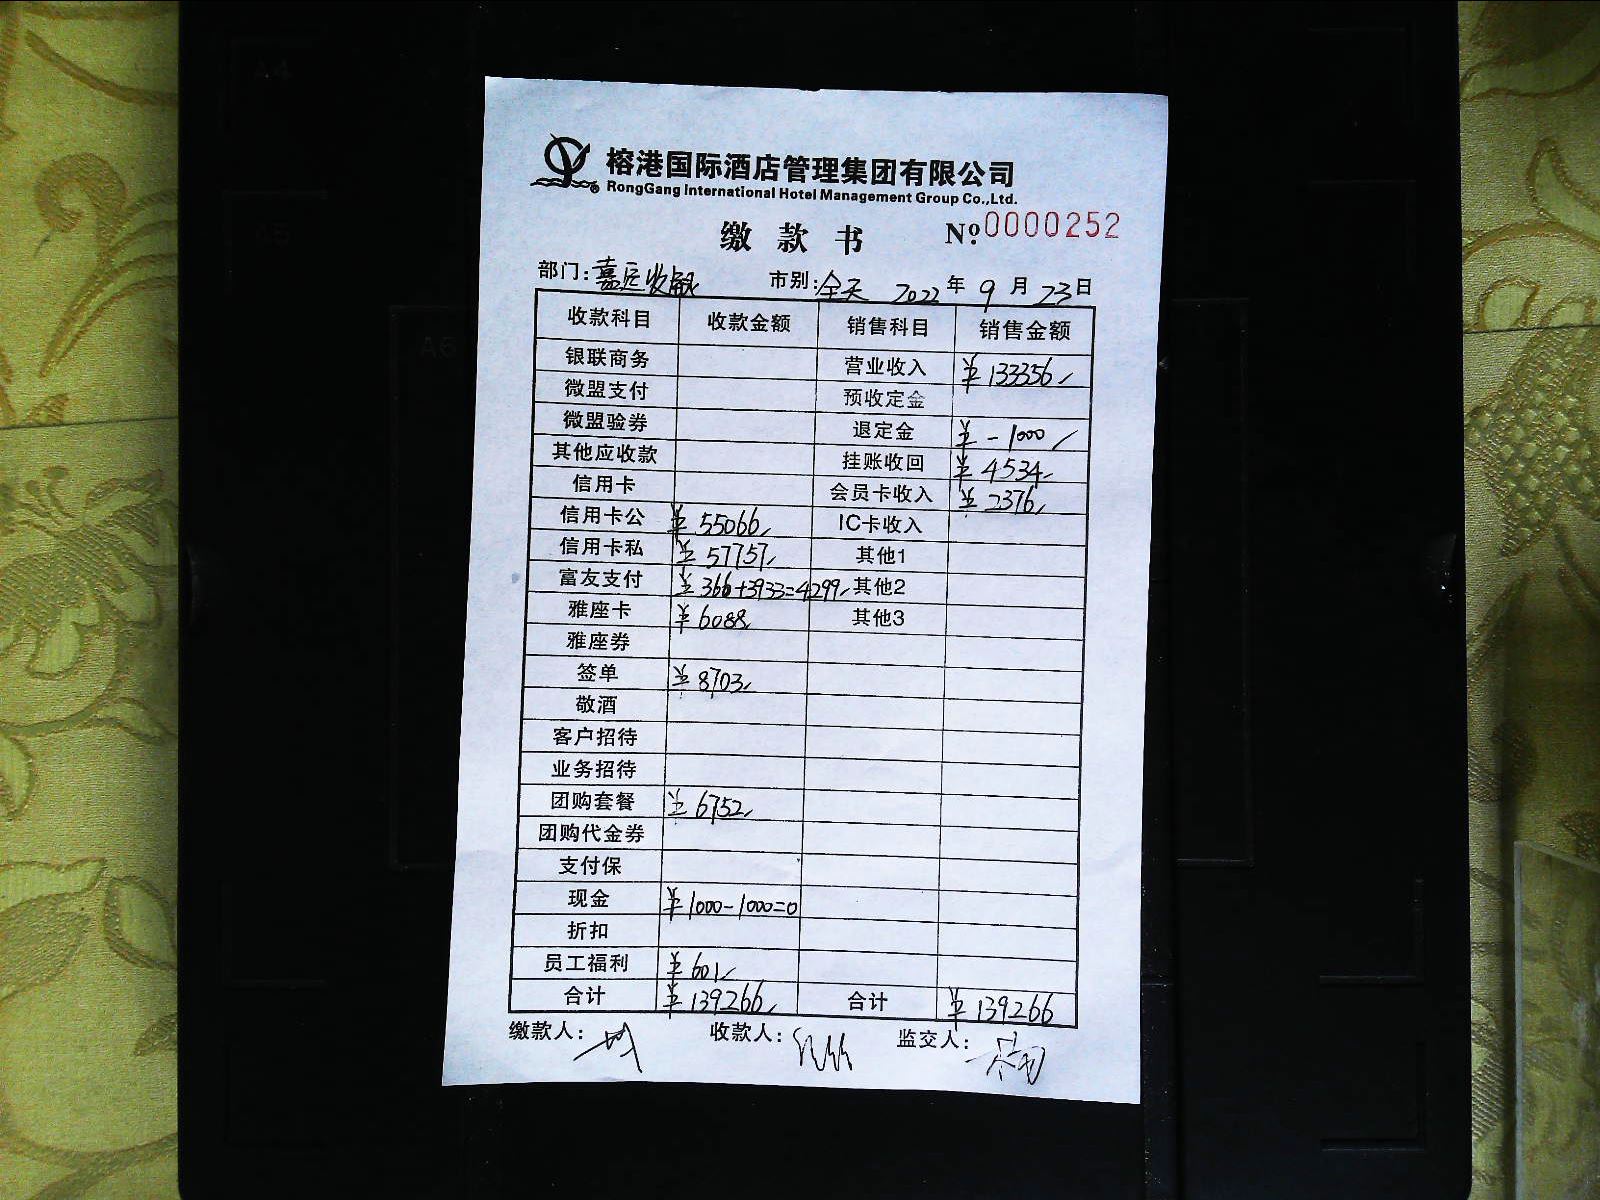 榕港国际酒店管理集团有限公司
RongGang International Hotel Management Group Co.,Ltd.
缴款书 №0000252
部门: 市别:全天 2022年9月23日
收款科目 收款金额 销售科目 销售金额
银联商务 营业收入 ¥133356
微盟支付 预收定金
微盟验券 退定金 ¥-1000
其他应收款 挂账收回 ¥4534
信用卡 会员卡收入 ¥2376
信用卡公 ¥55066 IC卡收入
信用卡私 ¥57757 其他1
富友支付 ¥366+3933=4299 其他2
雅座卡 ¥6088 其他3
雅座券
签单 ¥8703
敬酒
客户招待
业务招待
团购套餐 ¥6752
团购代金券
支付保
现金 ¥1000-1000=0
折扣
员工福利 ¥601
合计 ¥139266 合计 ¥139266
缴款人: 收款人: 监交人:
A4
A5
A6